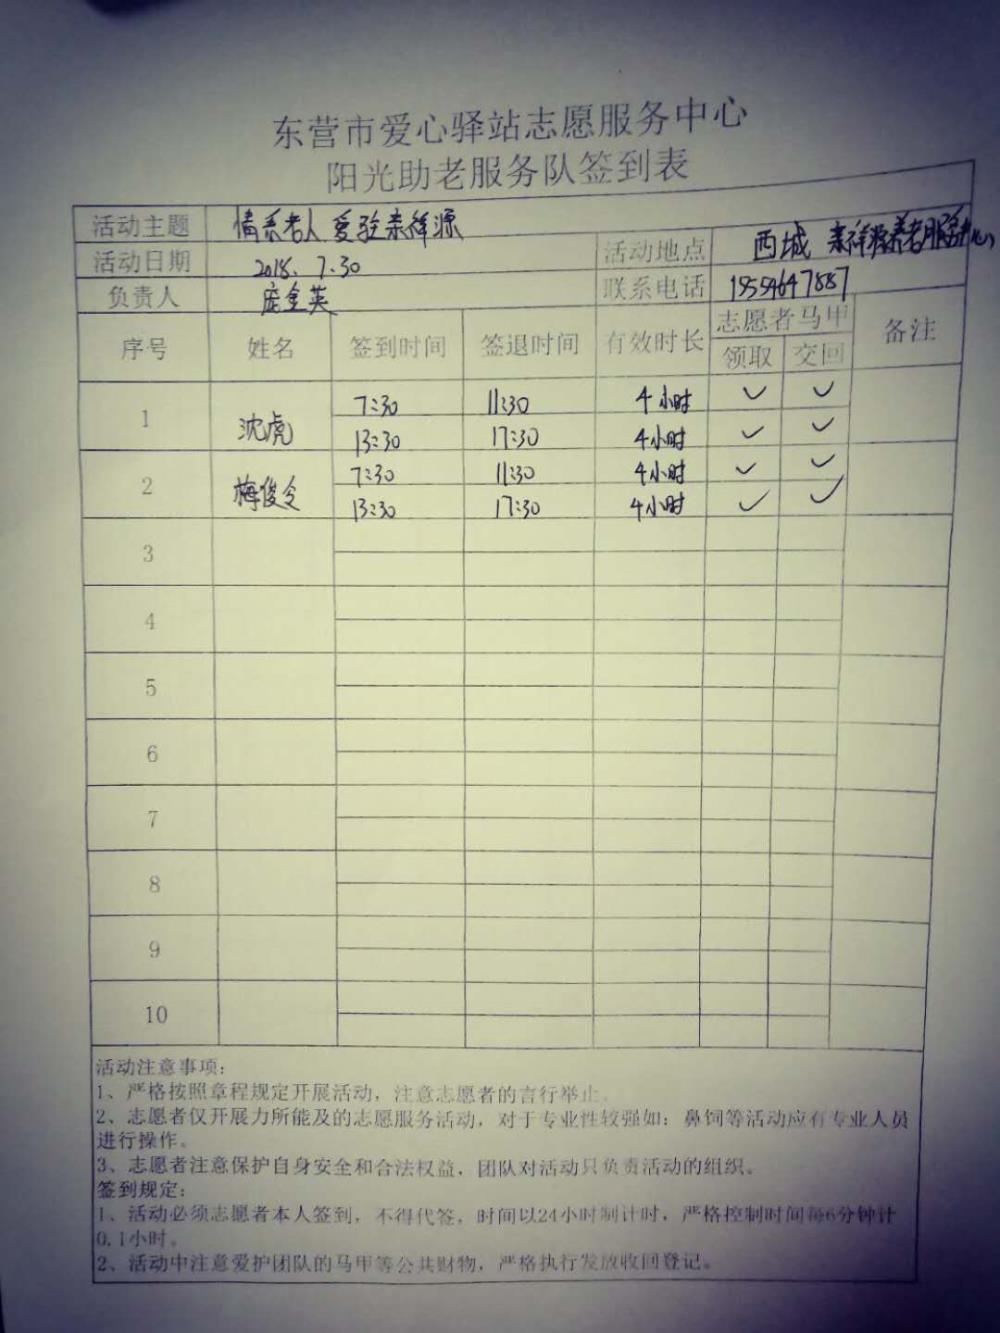 东营市爱心驿站志愿服务中心
阳光助老服务队签到表
活动主题 情系老人 爱驻亲祥源
活动日期 2018.7.30 活动地点 西城 亲祥源养老服务中心
负责人 庞金英 联系电话 19554647887
序号 姓名 签到时间 签退时间 有效时长 志愿者马甲 备注
领取 交回
1 沈虎 7:30 11:30 4小时 ✓ ✓
13:30 17:30 4小时 ✓ ✓
2 梅俊令 7:30 11:30 4小时 ✓ ✓
13:30 17:30 4小时 ✓ ✓
3
4
5
6
7
8
9
10
活动注意事项：
1、严格按照章程规定开展活动，注意志愿者的言行举止。
2、志愿者仅开展力所能及的志愿服务活动，对于专业性较强如：鼻饲等活动应有专业人员
进行操作。
3、志愿者注意保护自身安全和合法权益，团队对活动只负责活动的组织。
签到规定：
1、活动必须志愿者本人签到，不得代签，时间以24小时制计时，严格控制时间每6分钟计
0.1小时。
2、活动中注意爱护团队的马甲等公共财物，严格执行发放收回登记。